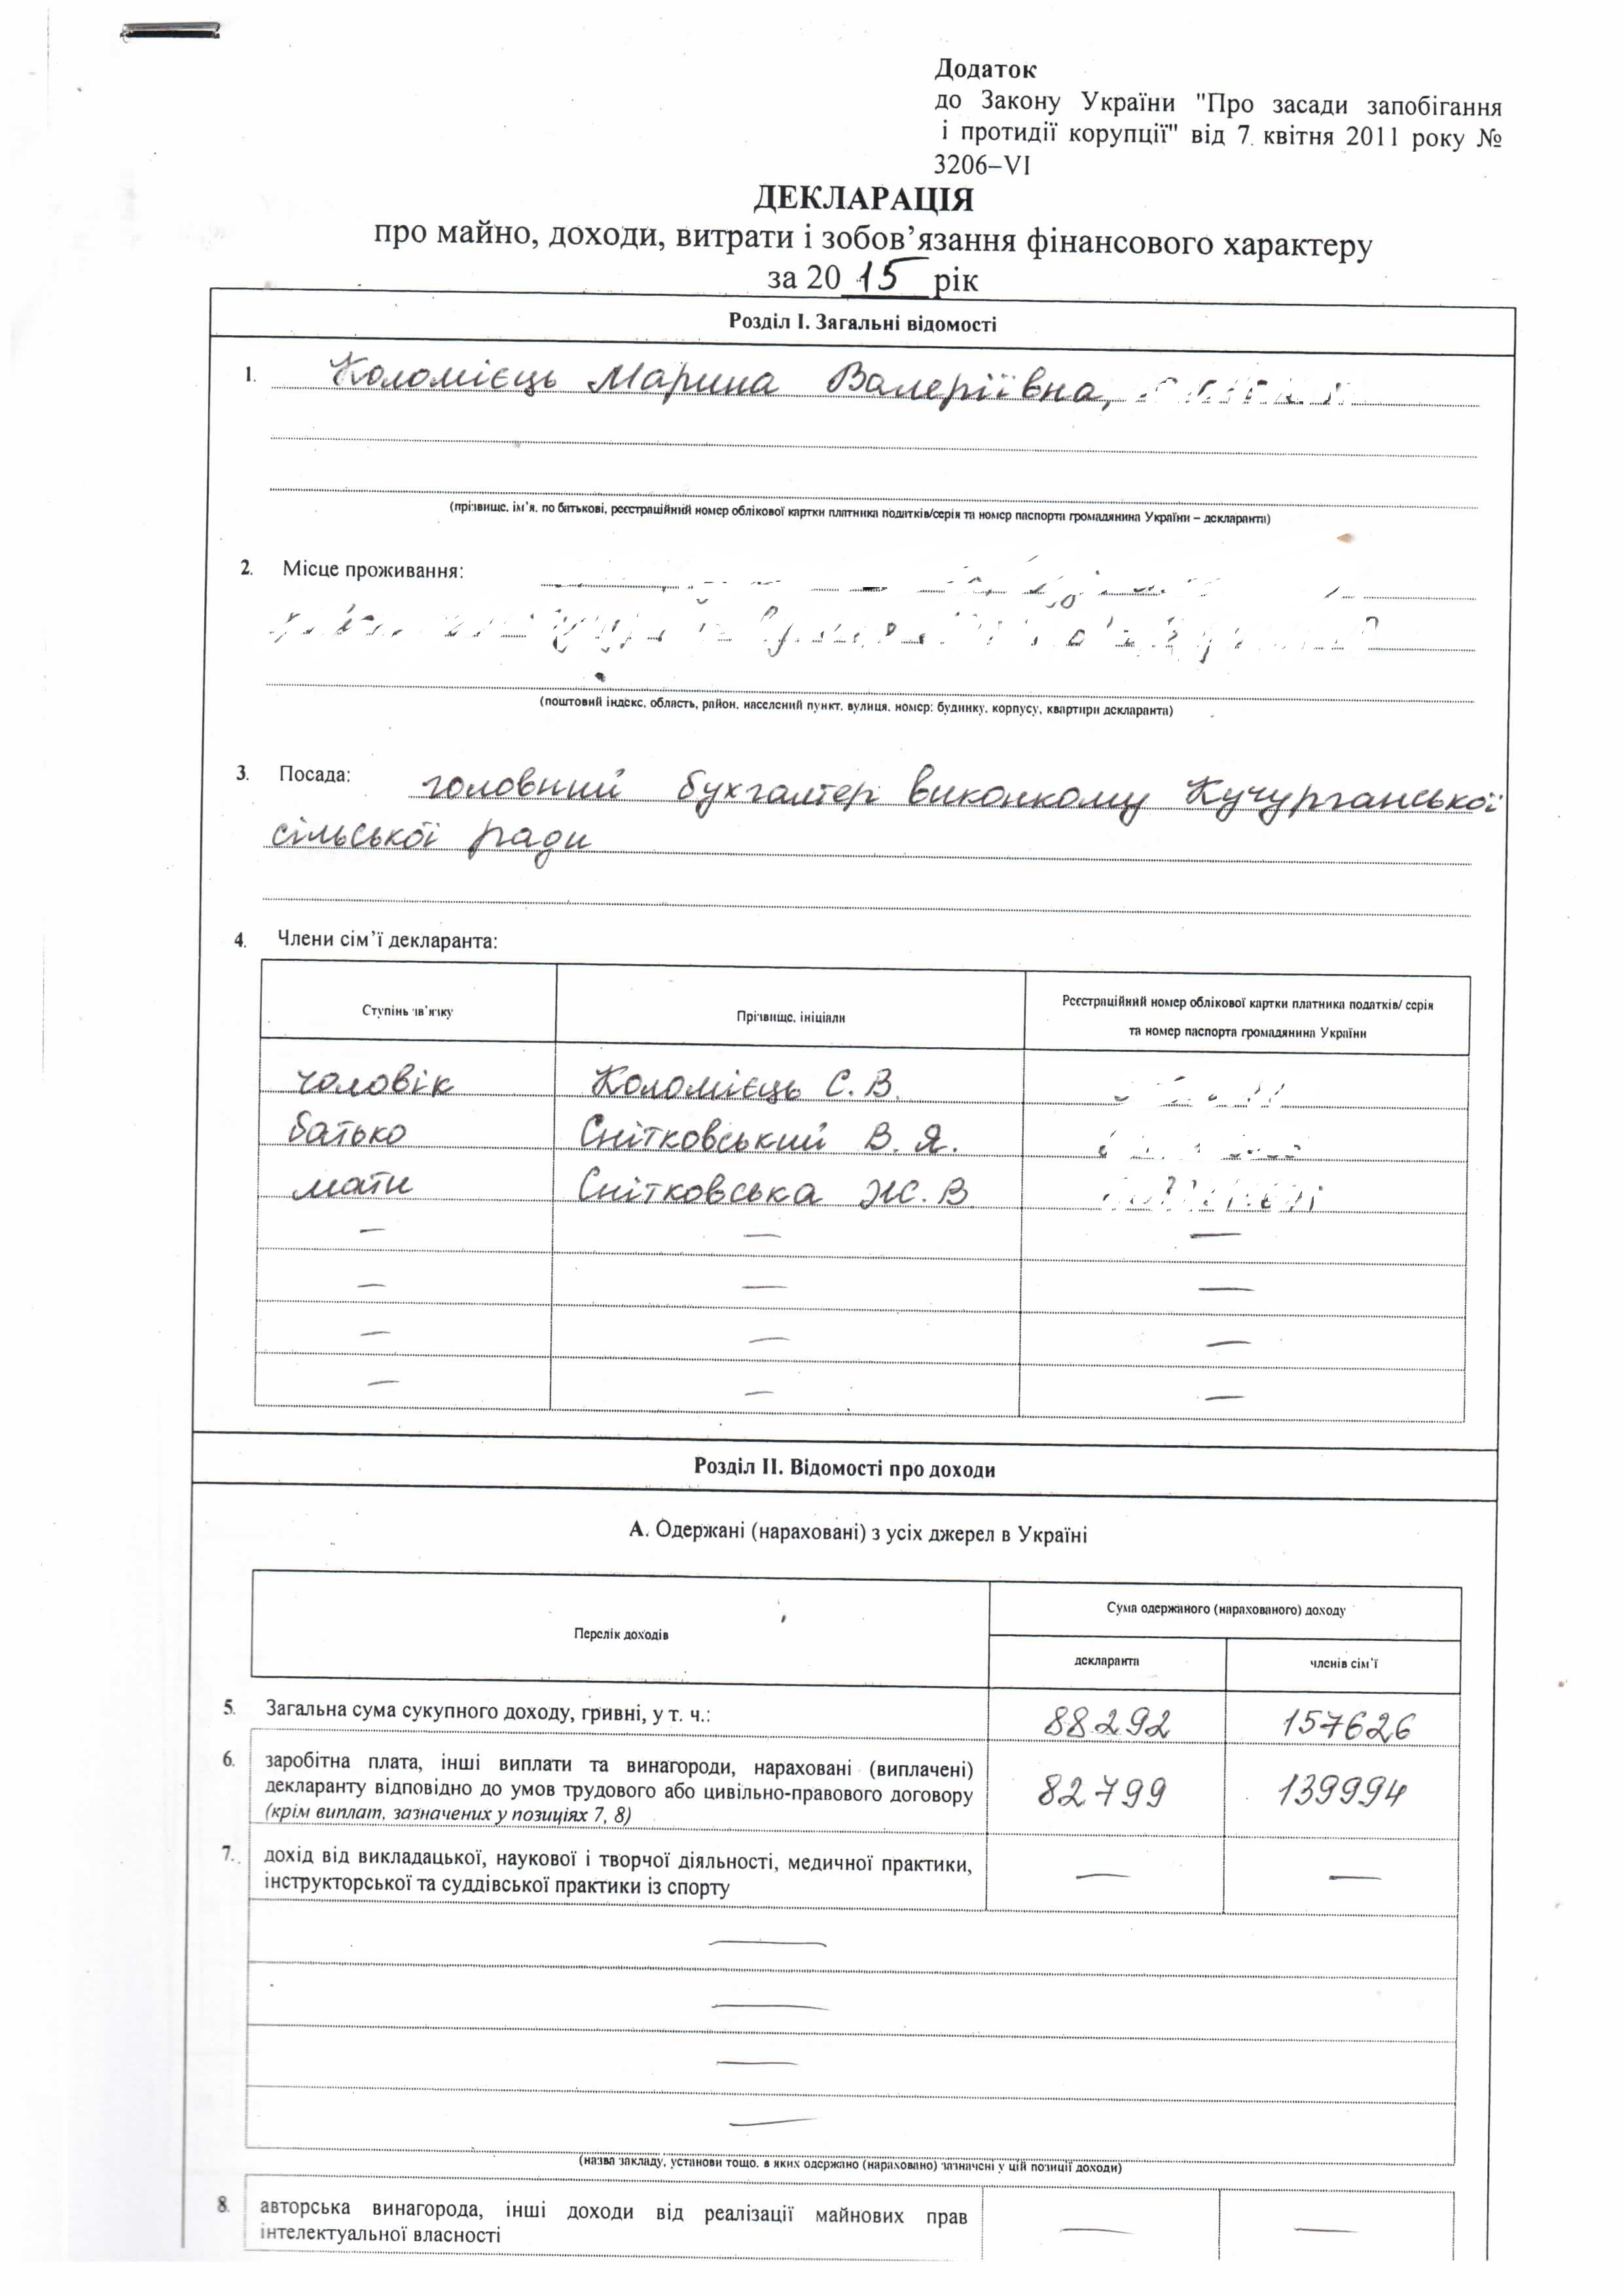 Додаток
до Закону України "Про засади запобігання
і протидії корупції" від 7 квітня 2011 року №
3206–VI
ДЕКЛАРАЦІЯ
про майно, доходи, витрати і зобов’язання фінансового характеру
за 20 15 рік
Розділ І. Загальні відомості
1. Коломієць Марина Валеріївна,
(прізвище, ім’я, по батькові, реєстраційний номер облікової картки платника податків/серія та номер паспорта громадянина України – декларанта)
2. Місце проживання:
(поштовий індекс, область, район, населений пункт, вулиця, номер: будинку, корпусу, квартири декларанта)
3. Посада: головний бухгалтер виконкому Кучурганської
сільської ради
4. Члени сім’ї декларанта:
Ступінь зв’язку Прізвище, ініціали Реєстраційний номер облікової картки платника податків/ серія
та номер паспорта громадянина України
чоловік Коломієць С. В.
батько Снітковський В. Я.
мати Снітковська Ж. В.
— — —
— — —
— — —
— — —
Розділ ІІ. Відомості про доходи
А. Одержані (нараховані) з усіх джерел в Україні
Перелік доходів Сума одержаного (нарахованого) доходу
декларанта членів сім’ї
5. Загальна сума сукупного доходу, гривні, у т. ч.: 88292 157626
6. заробітна плата, інші виплати та винагороди, нараховані (виплачені)
декларанту відповідно до умов трудового або цивільно-правового договору 82799 139994
(крім виплат, зазначених у позиціях 7, 8)
7. дохід від викладацької, наукової і творчої діяльності, медичної практики, — —
інструкторської та суддівської практики із спорту
—
—
—
—
(назва закладу, установи тощо, в яких одержано (нараховано) зазначені у цій позиції доходи)
8. авторська винагорода, інші доходи від реалізації майнових прав — —
інтелектуальної власності